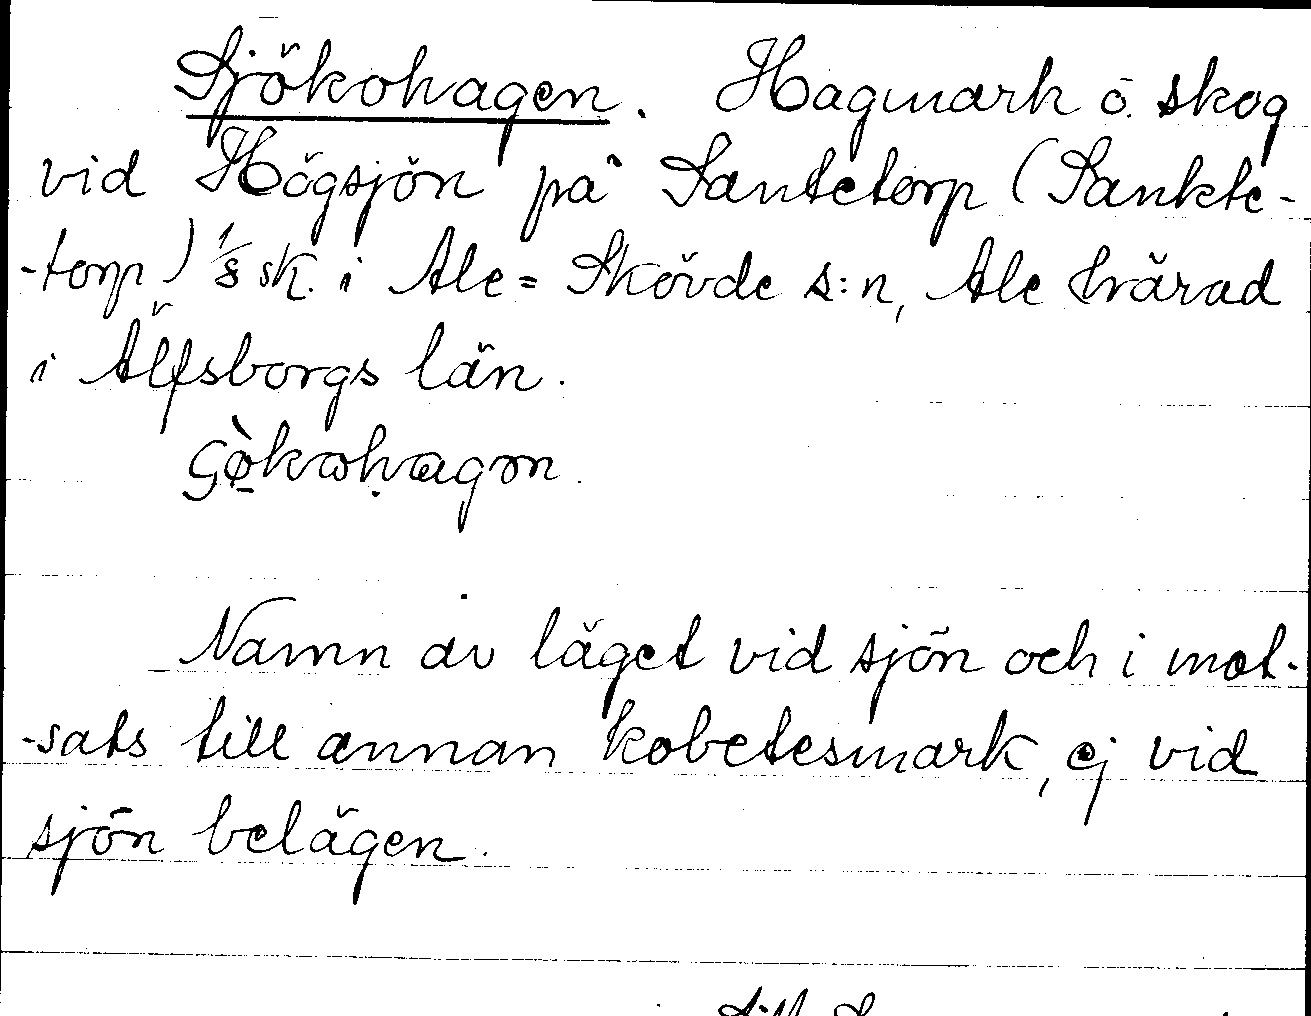 Sjökohagen. Hagmark o. skog
vid Högsjön på Santetorp (Sankte-
-torp) 1/8 sk. i Ale=Skövde s:n, Ale härad
i Älfsborgs län.
Namn av läget vid sjön och i mot-
-sats till annan kobetesmark, ej vid
sjön belägen.